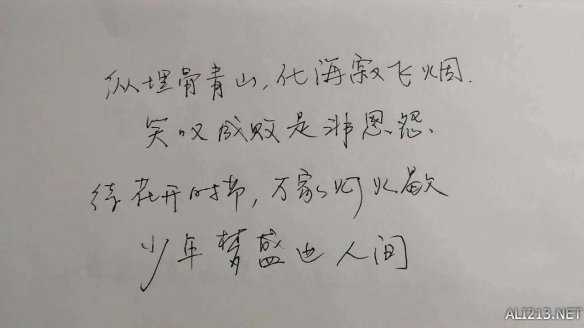 纵埋骨青山,化海寂飞烟.
笑叹成败是非恩怨、
待花开时节,万家灯火歇
少年梦盛世人间
ALI213.NET